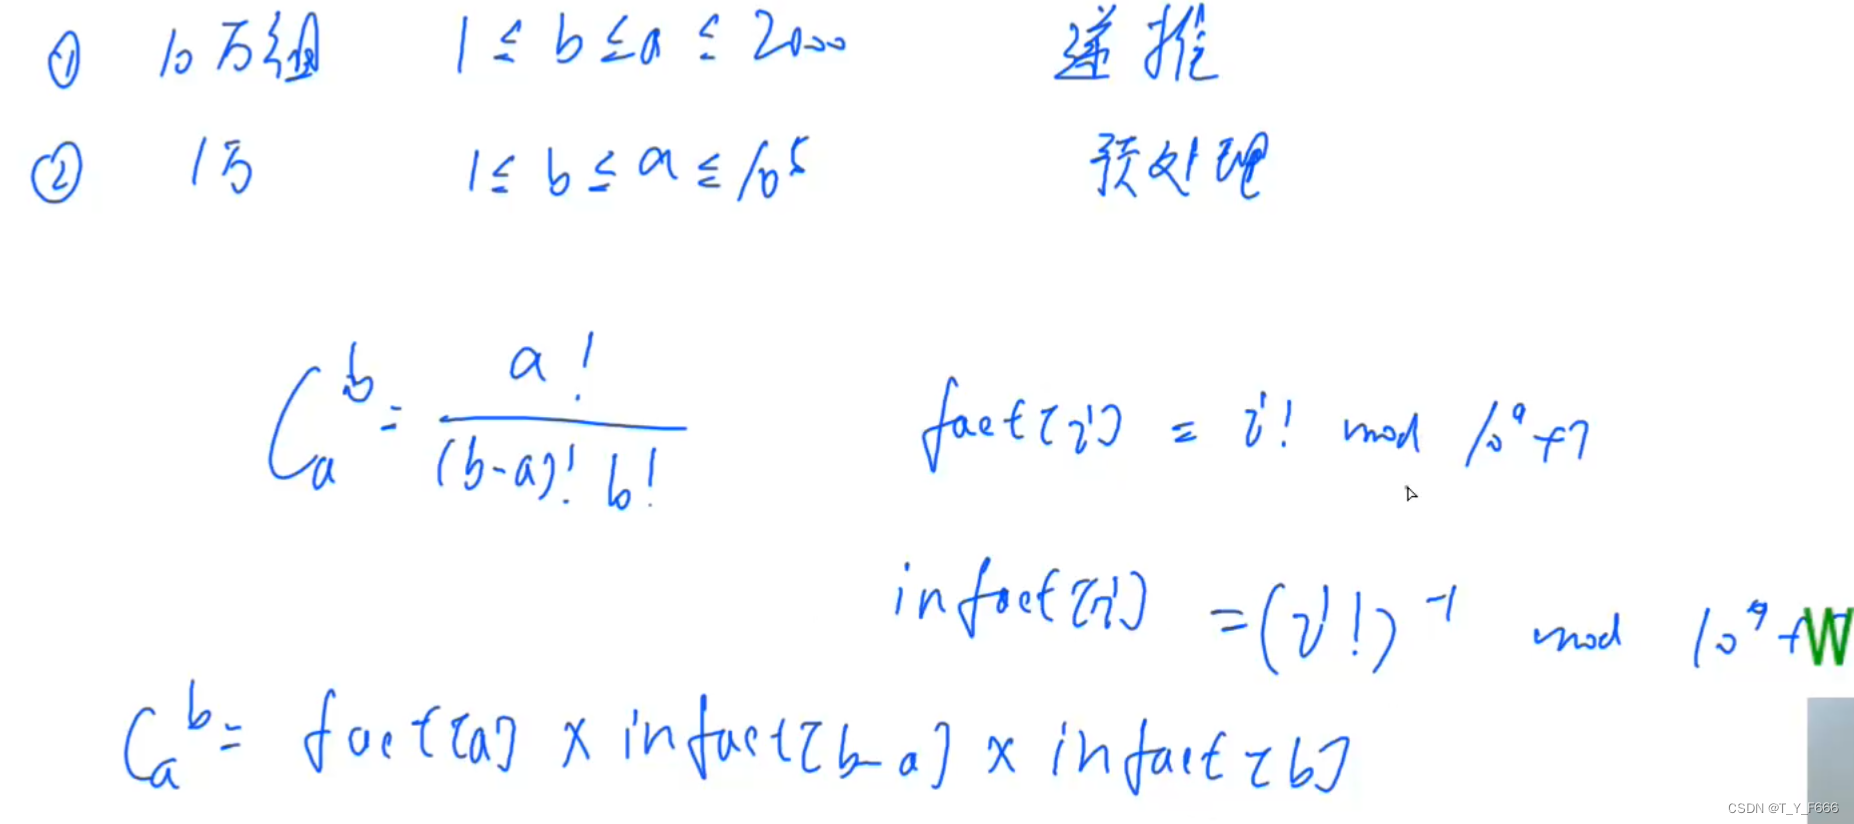 ① 10万组 1 ≤ b ≤ a ≤ 2000 递推
② 1万 1 ≤ b ≤ a ≤ 10^5 预处理
C_a^b = a! / (b-a)! b!
fact[i] = i! mod 10^9+7
infact[i] = (i!)^-1 mod 10^9+
W
C_a^b = fact[a] × infact[b-a] × infact[b]
CSDN @T_Y_F666